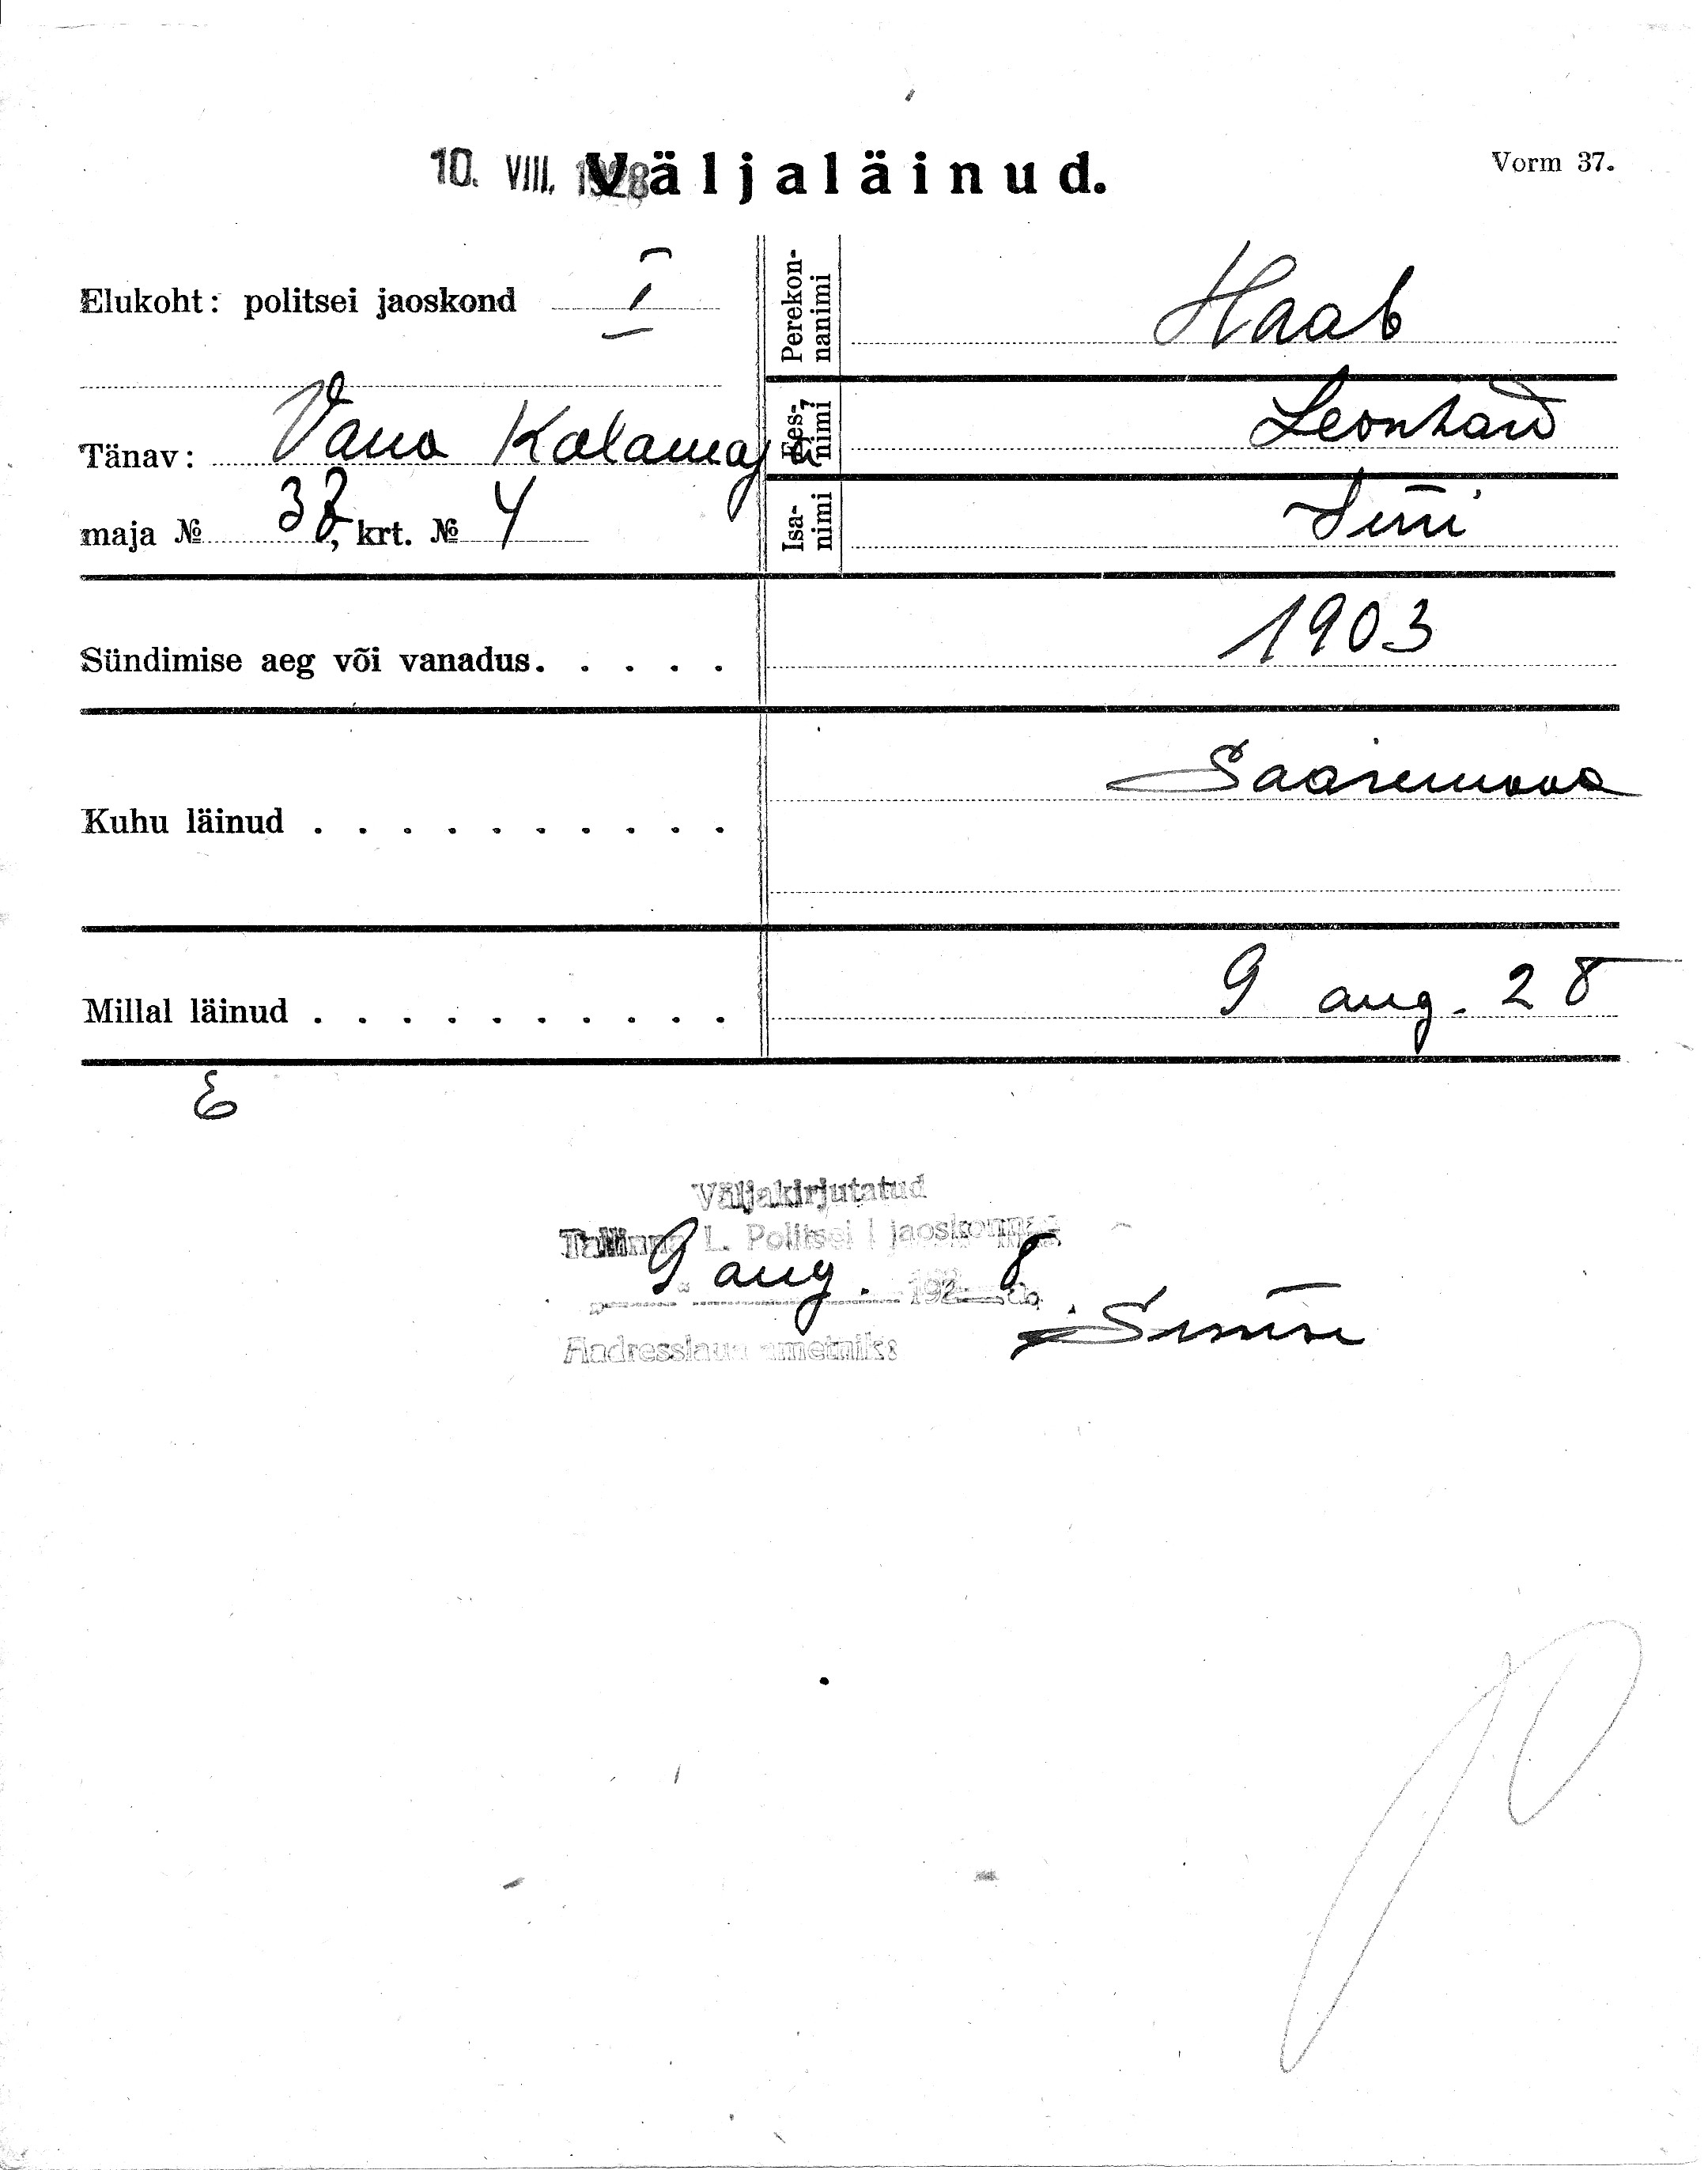 10. VIII. 1928 Väljaläinud.
Vorm 37.
Elukoht: politsei jaoskond I
Tänav: Vana Kalamaj
maja № 37, krt. № 4
Perekon-
nanimi
Haab
Ees-
nimi
Leonhard
Isa-
nimi
Sündimise aeg või vanadus. . . . . 1903
Kuhu läinud . . . . . . . . . . Saaremaa
Millal läinud . . . . . . . . . . 9 aug. 28
E
Väljakirjutatud
Tallinna L. Politsei I jaoskonnas
9 aug. 1928 a.
Aadresslaua ametnik: